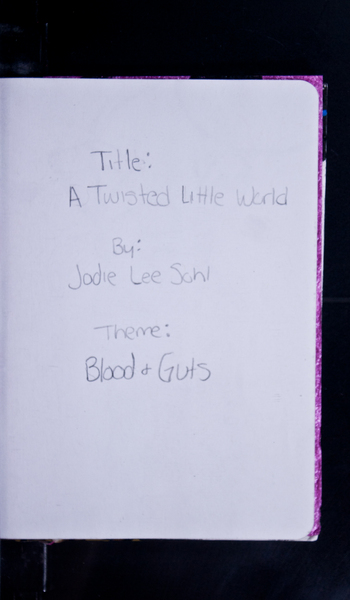 Title:
A Twisted Little World
By:
Jodie Lee Sahl
Theme:
Blood + Guts